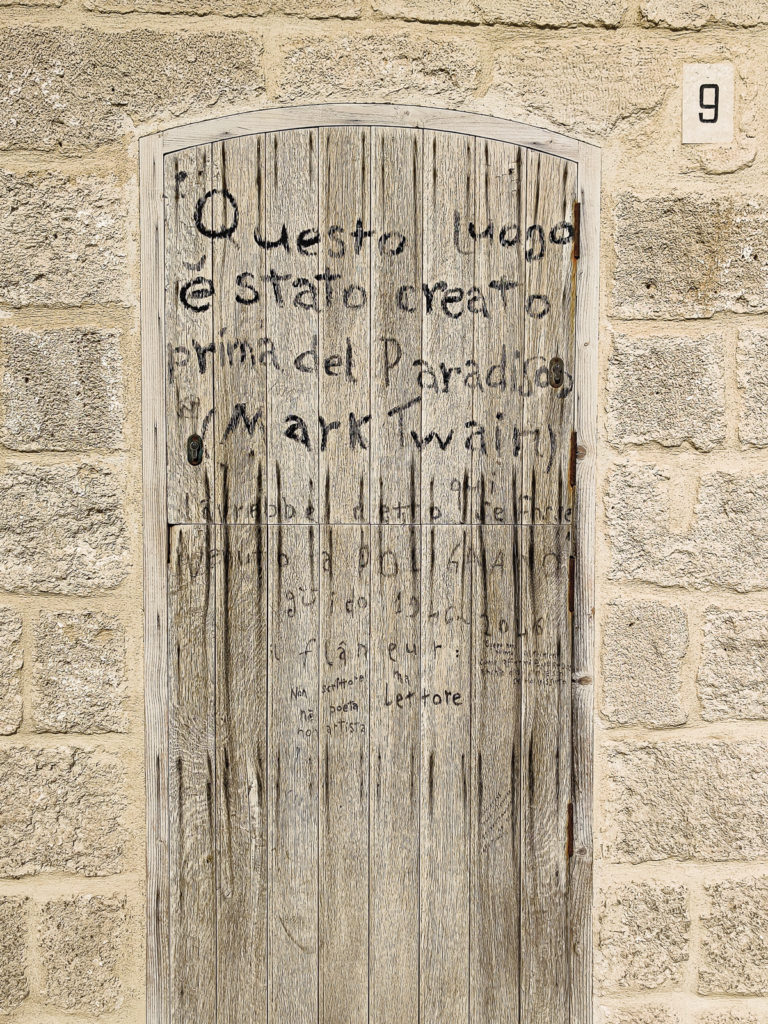 9
Questo luogo
é stato creato
prima del Paradiso
(Mark Twain)
qui
l'avrebbe detto se fosse
venuto a POLIGNANO
guido 2016
il flâneur:
Non scrittore ma
né poeta Lettore
non artista